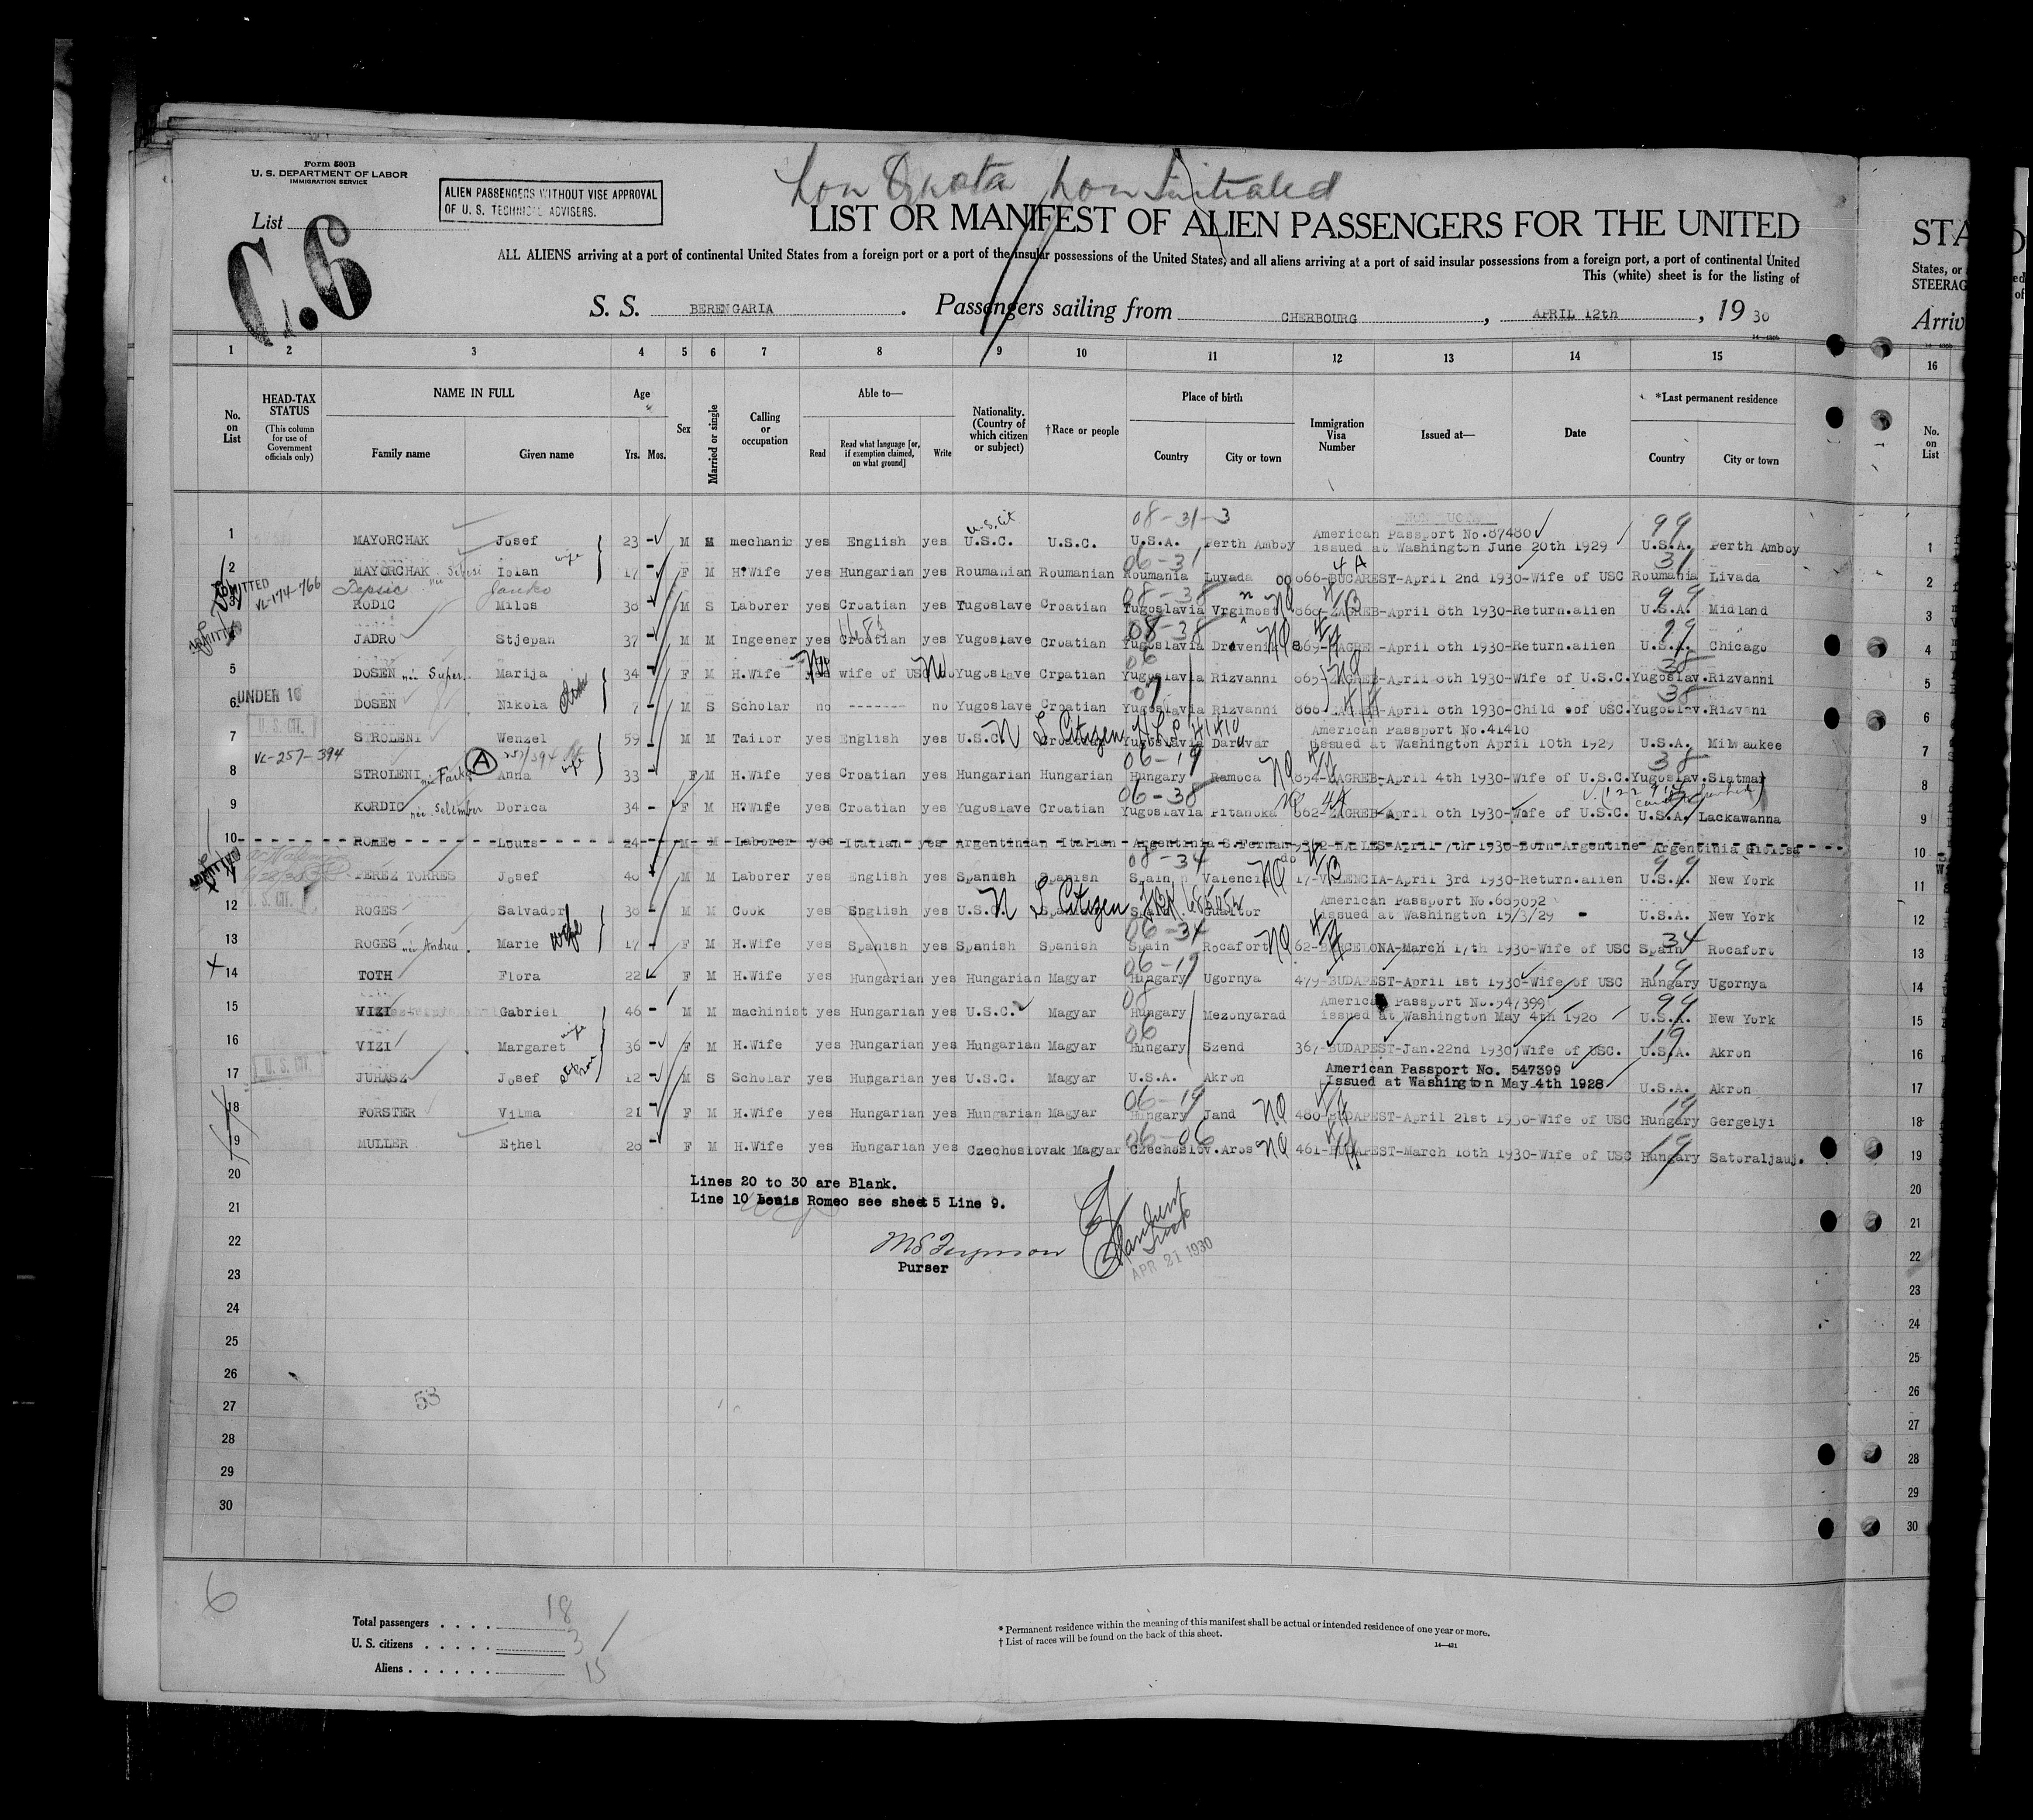 Form 500B
U. S. DEPARTMENT OF LABOR
IMMIGRATION SERVICE
ALIEN PASSENGERS WITHOUT VISE APPROVAL
OF U. S. TECHNICAL ADVISERS.
Non Quota
List
C.6
LIST OR MANIFEST OF ALIEN PASSENGERS FOR THE UNITED
STA
ALL ALIENS arriving at a port of continental United States from a foreign port or a port of the insular possessions of the United States, and all aliens arriving at a port of said insular possessions from a foreign port, a port of continental United
States, or
This (white) sheet is for the listing of
STEERAG
S. S. BERENGARIA . Passengers sailing from CHERBOURG , APRIL 12th , 19 30
Arriv
1 2 3 4 5 6 7 8 9 10 11 12 13 14 15 16
No. on List
HEAD-TAX STATUS (This column for use of Government officials only)
NAME IN FULL Family name Given name
Age Yrs. Mos.
Sex
Married or single
Calling or occupation
Able to— Read Read what language [or, if exemption claimed, on what ground] Write
Nationality. (Country of which citizen or subject)
†Race or people
Place of birth Country City or town
Immigration Visa Number
Issued at—
Date
*Last permanent residence Country City or town
No. on List
U.S. Cit 08-31-3 American Passport No.87480 99
1 MAYORCHAK Josef 23 - M M mechanic yes English yes U.S.C. U.S.C. U.S.A. Perth Amboy issued at Washington June 20th 1929 U.S.A. Perth Amboy 1
wife 06-31 4A 31
2 MAYORCHAK Iolan 17 - F M H.Wife yes Hungarian yes Roumanian Roumanian Roumania Luvada 066-BUCAREST-April 2nd 1930-Wife of USC Roumania Livada 2
ADMITTED VL-174-766 Janko 08-38 NQ 99
RODIC Milos 38 M S Laborer yes Croatian yes Yugoslave Croatian Yugoslavia Vrgimost 860-ZAGREB-April 8th 1930-Return.alien U.S.A. Midland 3
08-38 NQ 99
JADRO Stjepan 37 - M M Ingeener yes Croatian yes Yugoslave Croatian Yugoslavia Drevenik 869-ZAGREB-April 8th 1930-Return.alien U.S.A. Chicago 4
06 38
5 DOSEN Marija 34 F M H.Wife No wife of USC No Yugoslave Crpatian Yugoslavia Rizvanni 865-ZAGREB-April 8th 1930-Wife of U.S.C. Yugoslav. Rizvanni 5
UNDER 16 07 38
6 DOSEN Nikola 7 M S Scholar no ------- no Yugoslave Croatian Yugoslavia Rizvanni 866-ZAGREB-April 8th 1930-Child of USC. Yugoslav. Rizvani 6
U. S. CIT. Citizen 41410 American Passport No.41410
7 STROLENI Wenzel 59 - M M Tailor yes English yes U.S.C. Croatian Yugoslavia Daruvar issued at Washington April 10th 1929 U.S.A. Milwaukee 7
VC-257-394 A 257/394 wife 06-19 NQ 38
8 STROLENI Anna 33 - F M H.Wife yes Croatian yes Hungarian Hungarian Hungary Ramoca 854-ZAGREB-April 4th 1930-Wife of U.S.C. Yugoslav. Slatma 8
06-38
9 KORDIC Dorica 34 - F M H.Wife yes Croatian yes Yugoslave Croatian Yugoslavia Pitanoka 862-ZAGREB-April 8th 1930-Wife of U.S.C. U.S.A. Lackawanna 9
10 ROMEO Louis 24 M M Laborer yes Italian yes Argentinian Italian Argentinia April 7th 1930-Born-Argentine Argentinia 10
08-34 NQ 99
PEREZ TORRES Josef 40 M M Laborer yes English yes Spanish Spanish Spain Valencia 17-VALENCIA-April 3rd 1930-Return.alien U.S.A. New York 11
U. S. CIT. Citizen American Passport No.685052
12 ROGES Salvador 30 - M M Cook yes English yes U.S.C. issued at Washington 15/3/29 - U.S.A. New York 12
wife 06-34 NQ 34
13 ROGES née Andreu Marie 17 - F M H.Wife yes Spanish yes Spanish Spanish Spain Rocafort 62-BARCELONA-March 17th 1930-Wife of USC Spain Rocafort 13
06-19 19
14 TOTH Flora 22 F M H.Wife yes Hungarian yes Hungarian Magyar Hungary Ugornya 479-BUDAPEST-April 1st 1930-Wife of USC Hungary Ugornya 14
08 American Passport No.547399 99
15 VIZI Gabriel 46 - M M machinist yes Hungarian yes U.S.C. Magyar Hungary Mezonyarad issued at Washington May 4th 1928 U.S.A. New York 15
wife 06 19
16 VIZI Margaret 36 - F M H.Wife yes Hungarian yes Hungarian Magyar Hungary Szend 367-BUDAPEST-Jan.22nd 1930-Wife of USC. U.S.A. Akron 16
U. S. CIT. American Passport No. 547399
17 JUHASZ Josef 12 M S Scholar yes Hungarian yes U.S.C. Magyar U.S.A. Akron Issued at Washington May 4th 1928 U.S.A. Akron 17
06-19 NQ 19
18 FORSTER Vilma 21 F M H.Wife yes Hungarian yes Hungarian Magyar Hungary Jand 480-BUDAPEST-April 21st 1930-Wife of USC Hungary Gergelyi 18
06-06 NQ 19
19 MULLER Ethel 20 F M H.Wife yes Hungarian yes Czechoslovak Magyar Czechoslov. Aros 461-BUDAPEST-March 18th 1930-Wife of USC Hungary Satoraljauj. 19
20 Lines 20 to 30 are Blank. 20
21 Line 10 Louis Romeo see sheet 5 Line 9. 21
22 22
APR 21 1930
23 Purser 23
24 24
25 25
26 26
27 53 27
28 28
29 29
30 30
6
Total passengers . . . . 18
U. S. citizens . . . . . 3
Aliens . . . . . . 15
* Permanent residence within the meaning of this manifest shall be actual or intended residence of one year or more.
† List of races will be found on the back of this sheet.
14—431